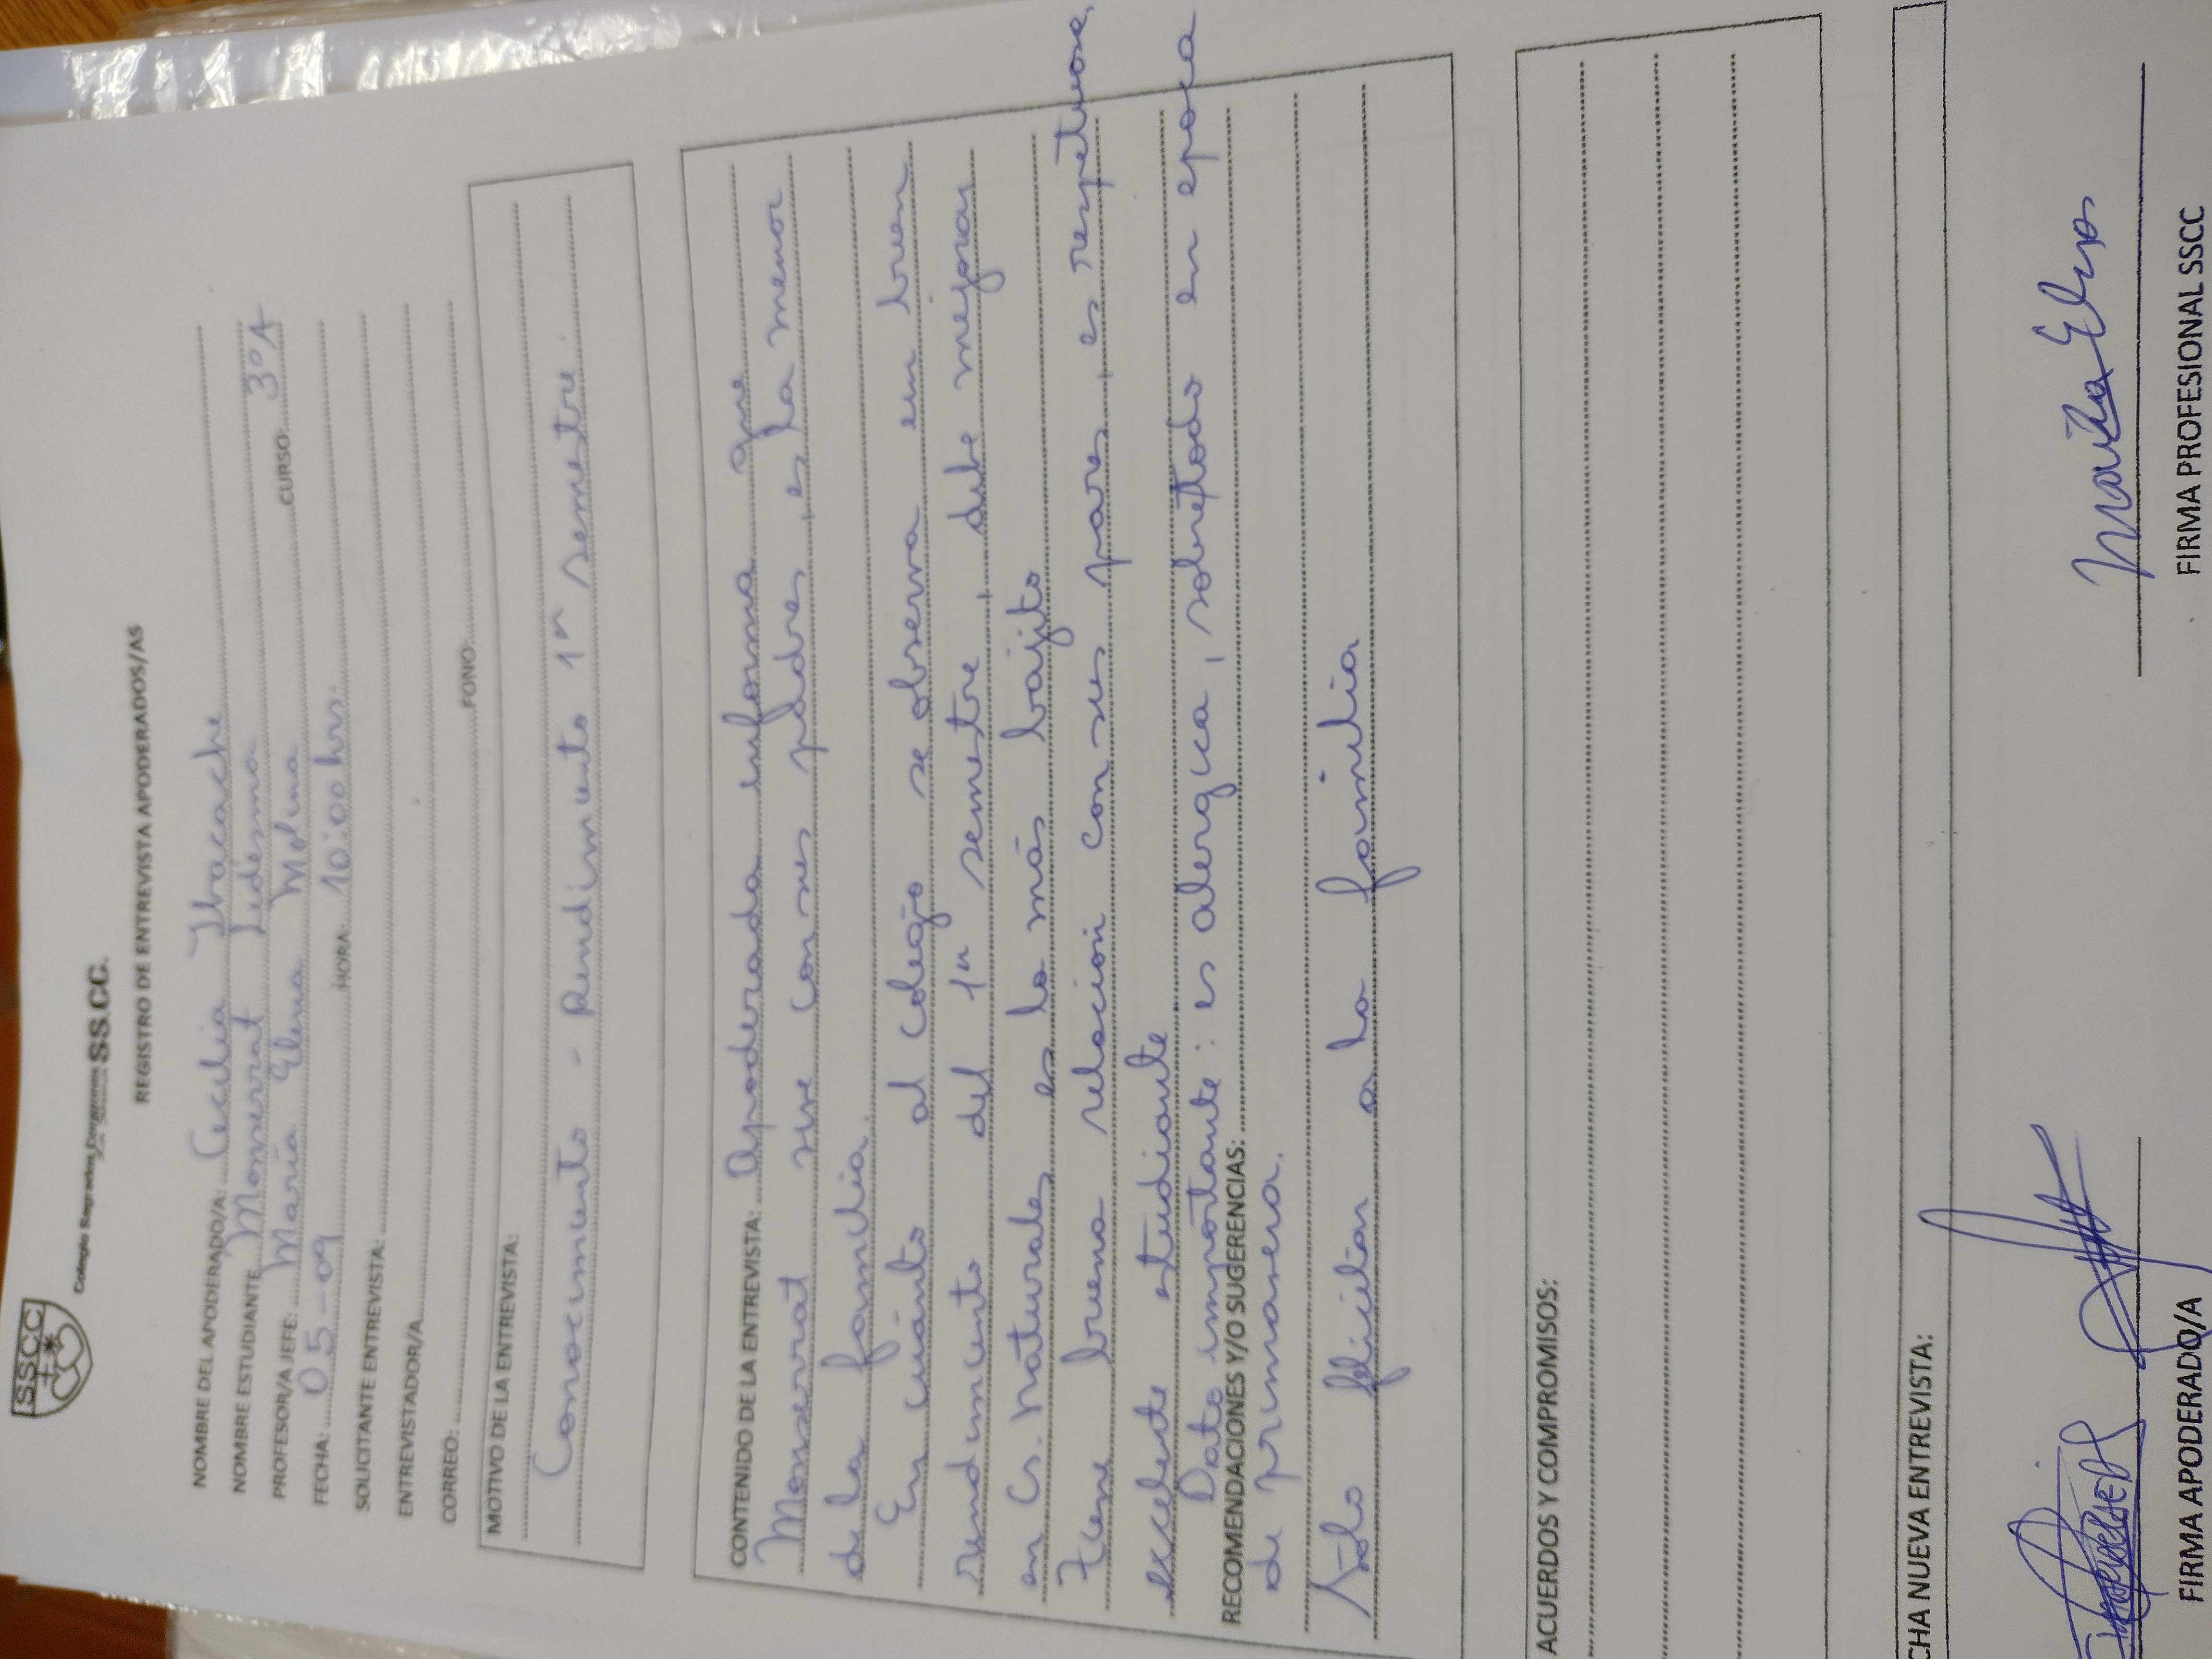 SSCC
Colegio Sagrados Corazones SS.CC.
REGISTRO DE ENTREVISTA APODERADOS/AS
NOMBRE DEL APODERADO/A: Cecilia Ibacache
NOMBRE ESTUDIANTE Monserrat Ledesma CURSO: 3°A
PROFESOR/A JEFE: María Elena Molina
FECHA: 05-09 HORA: 10:00 hrs.
SOLICITANTE ENTREVISTA:
ENTREVISTADOR/A
CORREO: FONO:
MOTIVO DE LA ENTREVISTA:
Conocimiento - Rendimiento 1er semestre.
CONTENIDO DE LA ENTREVISTA: Apoderada informa que
Monserrat vive con sus padres, es la menor
de la familia.
En cuánto al colegio se observa un buen
rendimiento del 1er semestre, debe mejorar
en Cs. Naturales es lo más bajito
Tiene buena relación con sus pares, es respetuosa,
excelente estudiante
Dato importante: es alergica, sobretodo en epoca
RECOMENDACIONES Y/O SUGERENCIAS:
de primavera.
Solo felicitar a la familia
ACUERDOS Y COMPROMISOS:
CHA NUEVA ENTREVISTA:
María Elena
FIRMA APODERADO/A FIRMA PROFESIONAL SSCC